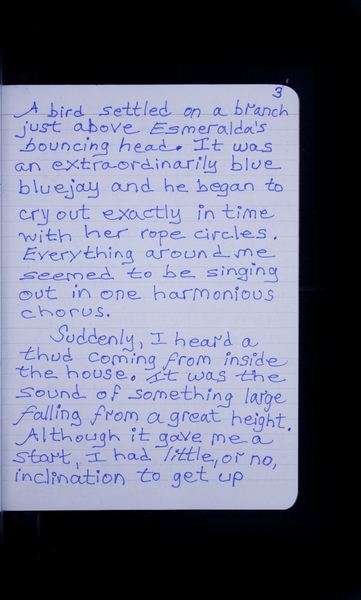 3
A bird settled on a branch
just above Esmeralda's
bouncing head. It was
an extraordinarily blue
bluejay and he began to
cry out exactly in time
with her rope circles.
Everything around me
seemed to be singing
out in one harmonious
chorus.
Suddenly, I heard a
thud coming from inside
the house. It was the
sound of something large
falling from a great height.
Although it gave me a
start, I had little, or no,
inclination to get up